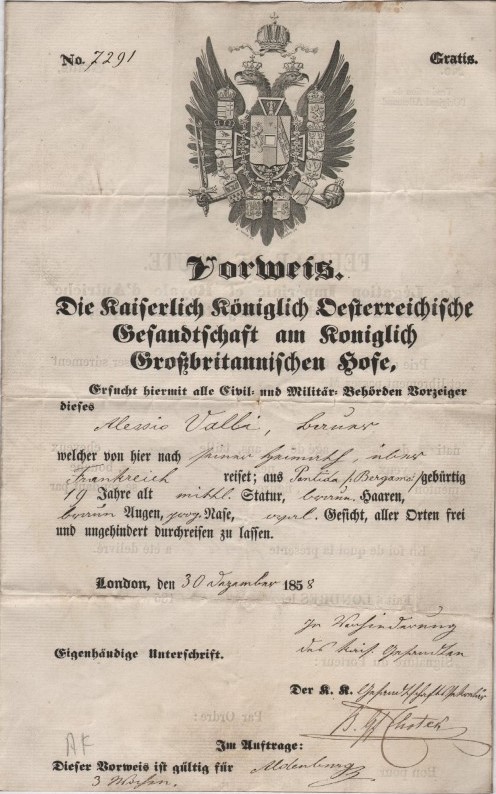 No. 7291 Gratis.
Vorweis.
Die Kaiserlich Königlich Oesterreichische
Gesandtschaft am Koniglich
Großbritannischen Hofe,
Ersucht hiermit alle Civil- und Militär-Behörden Vorzeiger
dieses
Alessio Valli, bauer
welcher von hier nach seiner Heimath, über
Frankreich reiset; aus Pontida p/ Bergamo /gebürtig
19 Jahre alt mittl. Statur, braun. Haaren,
braun Augen, prop. Nase, oval. Gesicht, aller Orten frei
und ungehindert durchreisen zu lassen.
London, den 30 Dezember 1858
In Verhinderung
des kais. Gesandten
Eigenhändige Unterschrift.
Der K. K. Gesandtschafts
Chotek
AF
Im Auftrage:
Dieser Vorweis ist gültig für
3 Wochen.